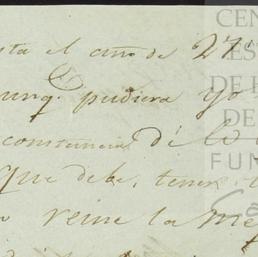 sta el año de 27
aunq. pudiera yo
constancia de lo
que debe, tener
reine la me
CEN
ES
DE
DE
FUN